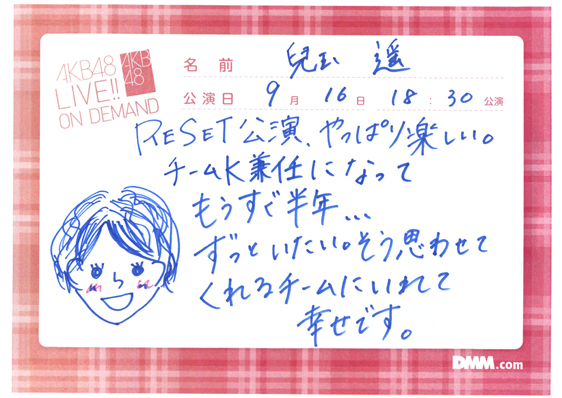 AKB48
LIVE!!
ON DEMAND
AKB
48
名前 兒玉 遥
公演日 9月 16日 18:30 公演
RESET公演、やっぱり楽しい。
チームK兼任になって
もうすぐ半年...
ずっといたい。そう思わせて
くれるチームにいれて
幸せです。
DMM.com